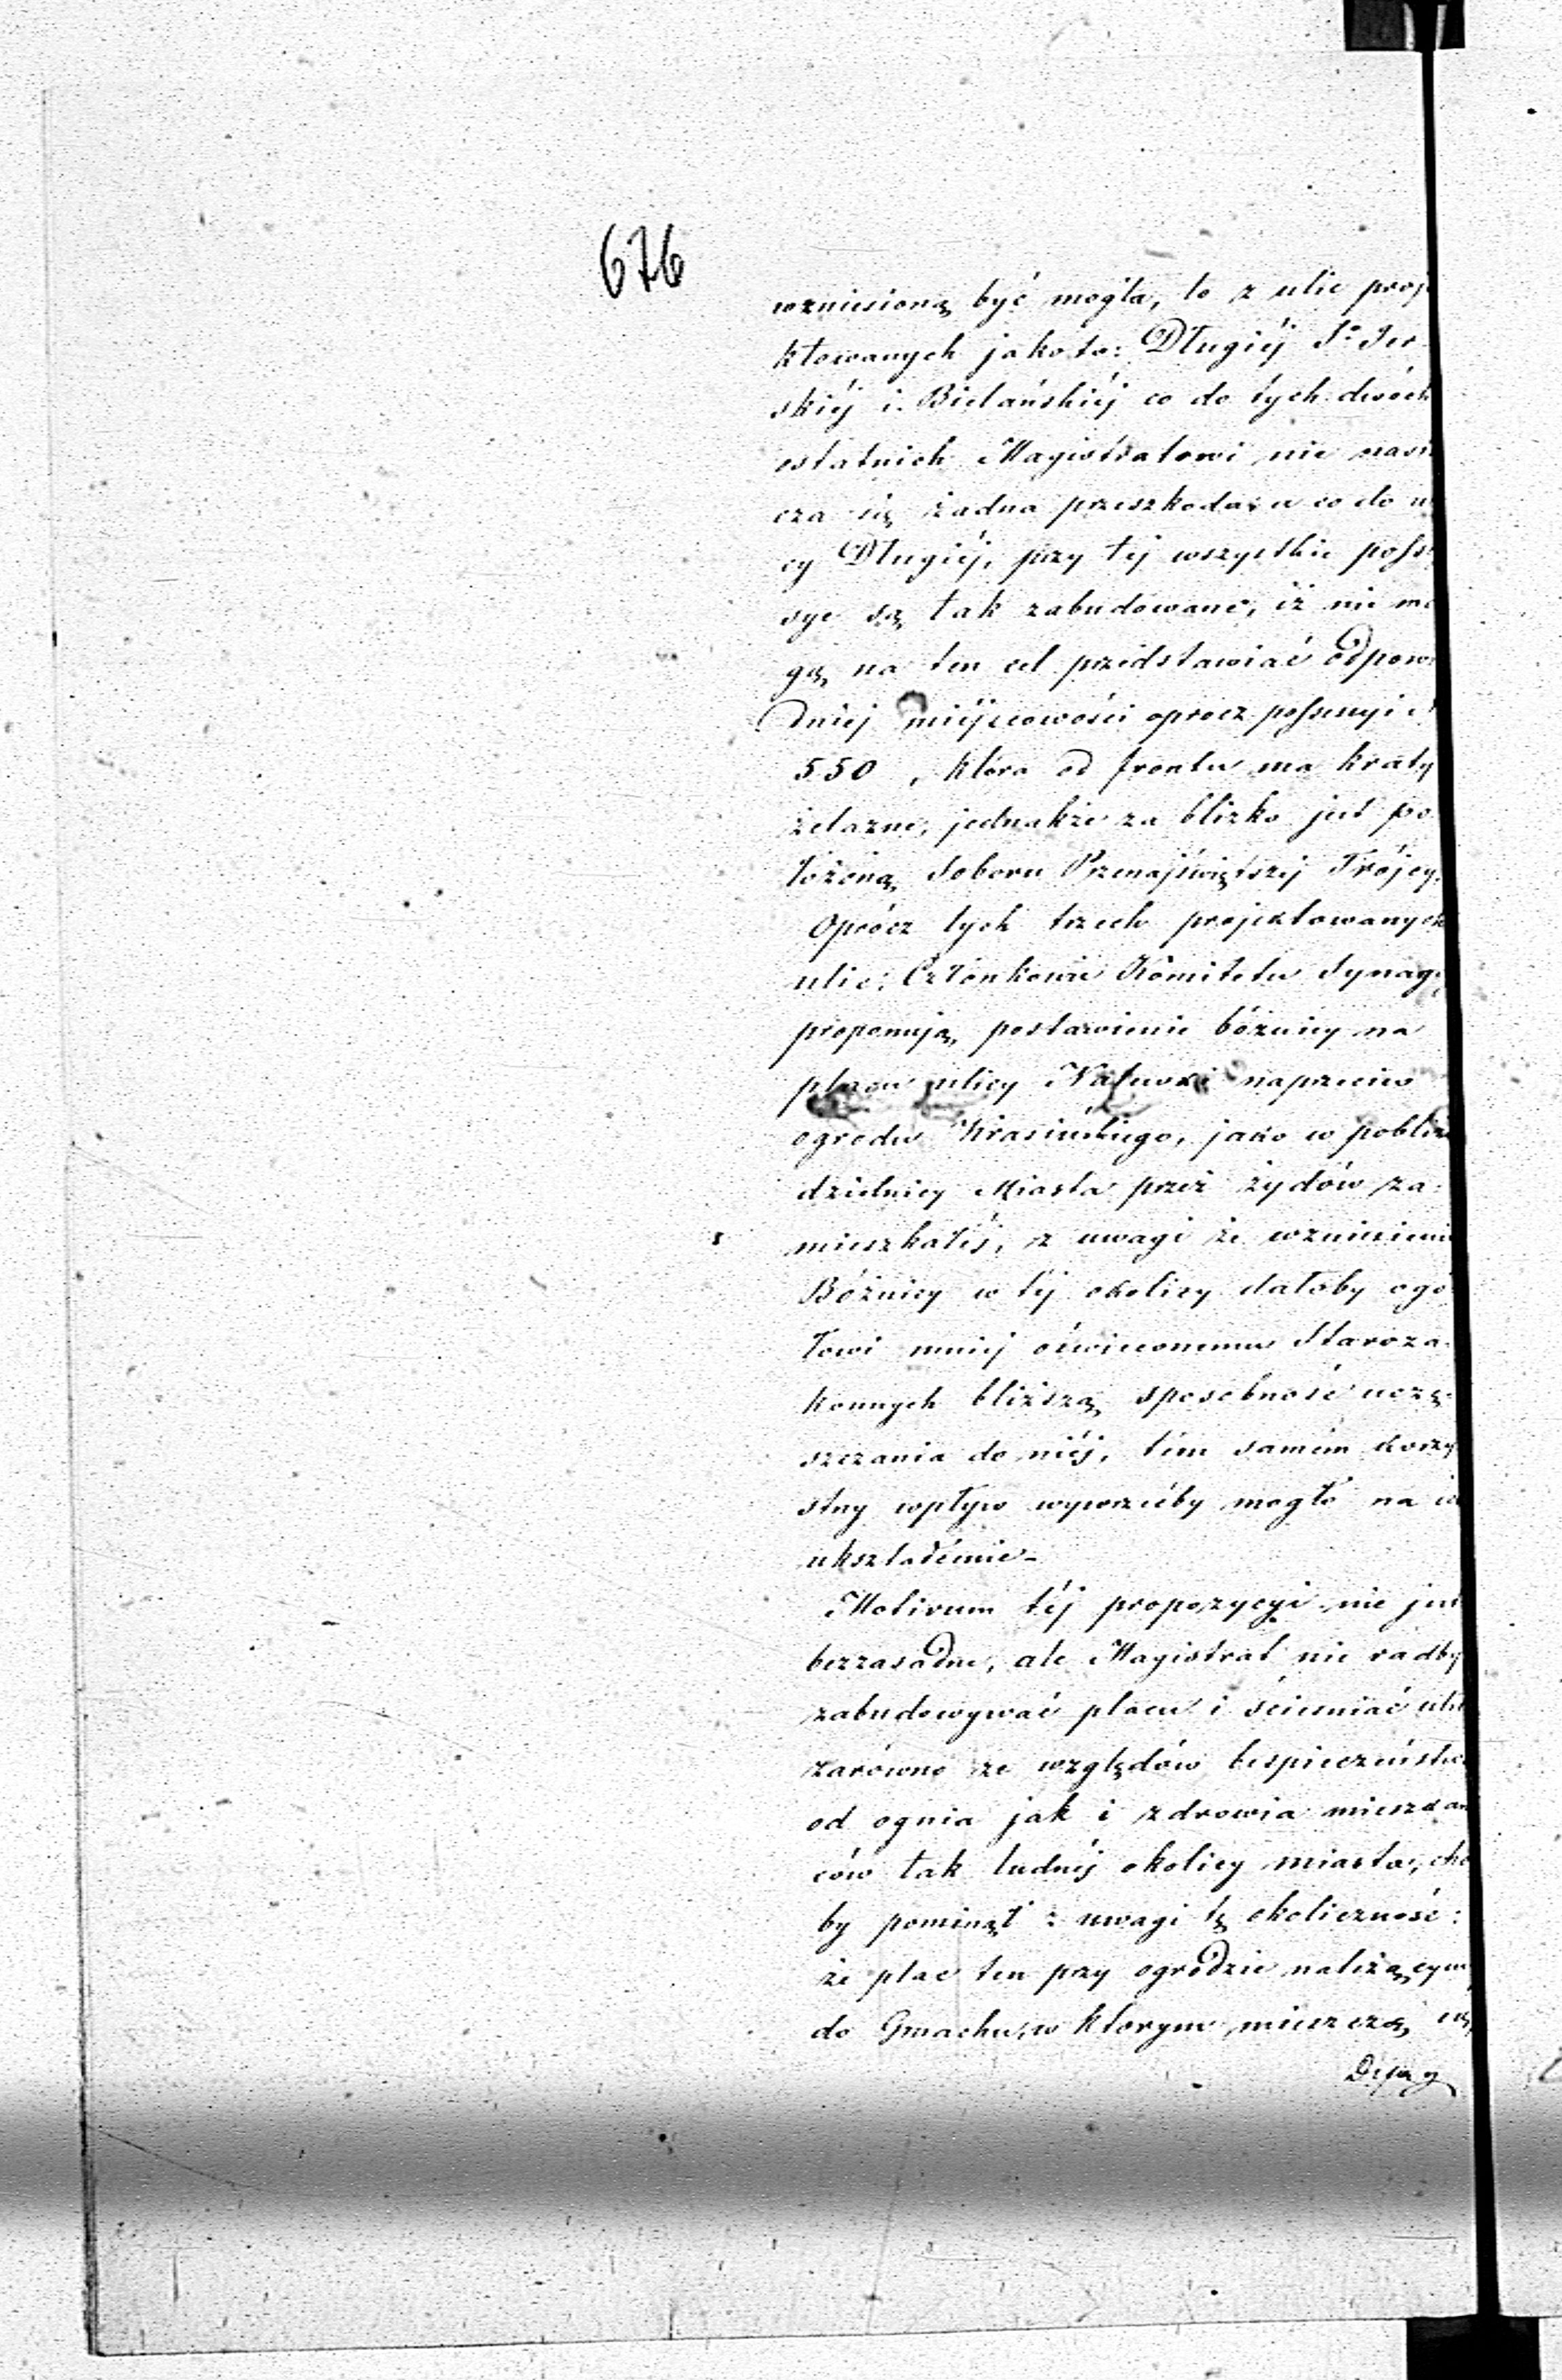 676
wzniesioną być mogła, to z ulic proje
ktowanych jako to: Długiéj S° Jer
skiéj i Bielańskiéj co do tych dwóch
ostatnich Magistratowi nie nasu
cza się żadna przeszkoda, a co do
cy Długiéj, przy tej wszystkie posse
sye są tak zabudowane, iż nie mo
gą na ten cel przedstawiać odpowi
dniej miéjscowości oprocz possessyi
550, która od frontu ma kraty
żelazne, jednakże za blizko jest po
łożoną Soboru Przenajświętszéj Trójcy.
Oprócz tych trzech projektowanych
ulic, Członkowie Komitetu Synago
proponują postawienie bóżnicy na
placu ulicy Nalewki naprzeciw
ogrodu Krasińskiego, jako w pobliżu
dzielnicy Miasta przez żydów za-
mieszkałéj, z uwagi że wzniesienie
Bóżnicy w téj okolicy dałoby ogó
łowi mniej oświeconemu Staroza-
konnych bliższą sposobność uczę-
szczania do niéj, tém samém korzy
stny wpływ wywrzéćby mogło na ich
ukształcenie.
Motivum téj propozycyi nie jest
bezzasadne, ale Magistrat nie radby
zabudowywać placu i ścieśniać ulic
zarówno ze względów bespieczeństwa
od ognia jak i zdrowia mieszkań
ców tak ludnéj okolicy miasta, cho
by pominął z uwagi tę okoliczność:
że plac ten przy ogrodzie należącym
do Gmachu, w którym mieszczą się